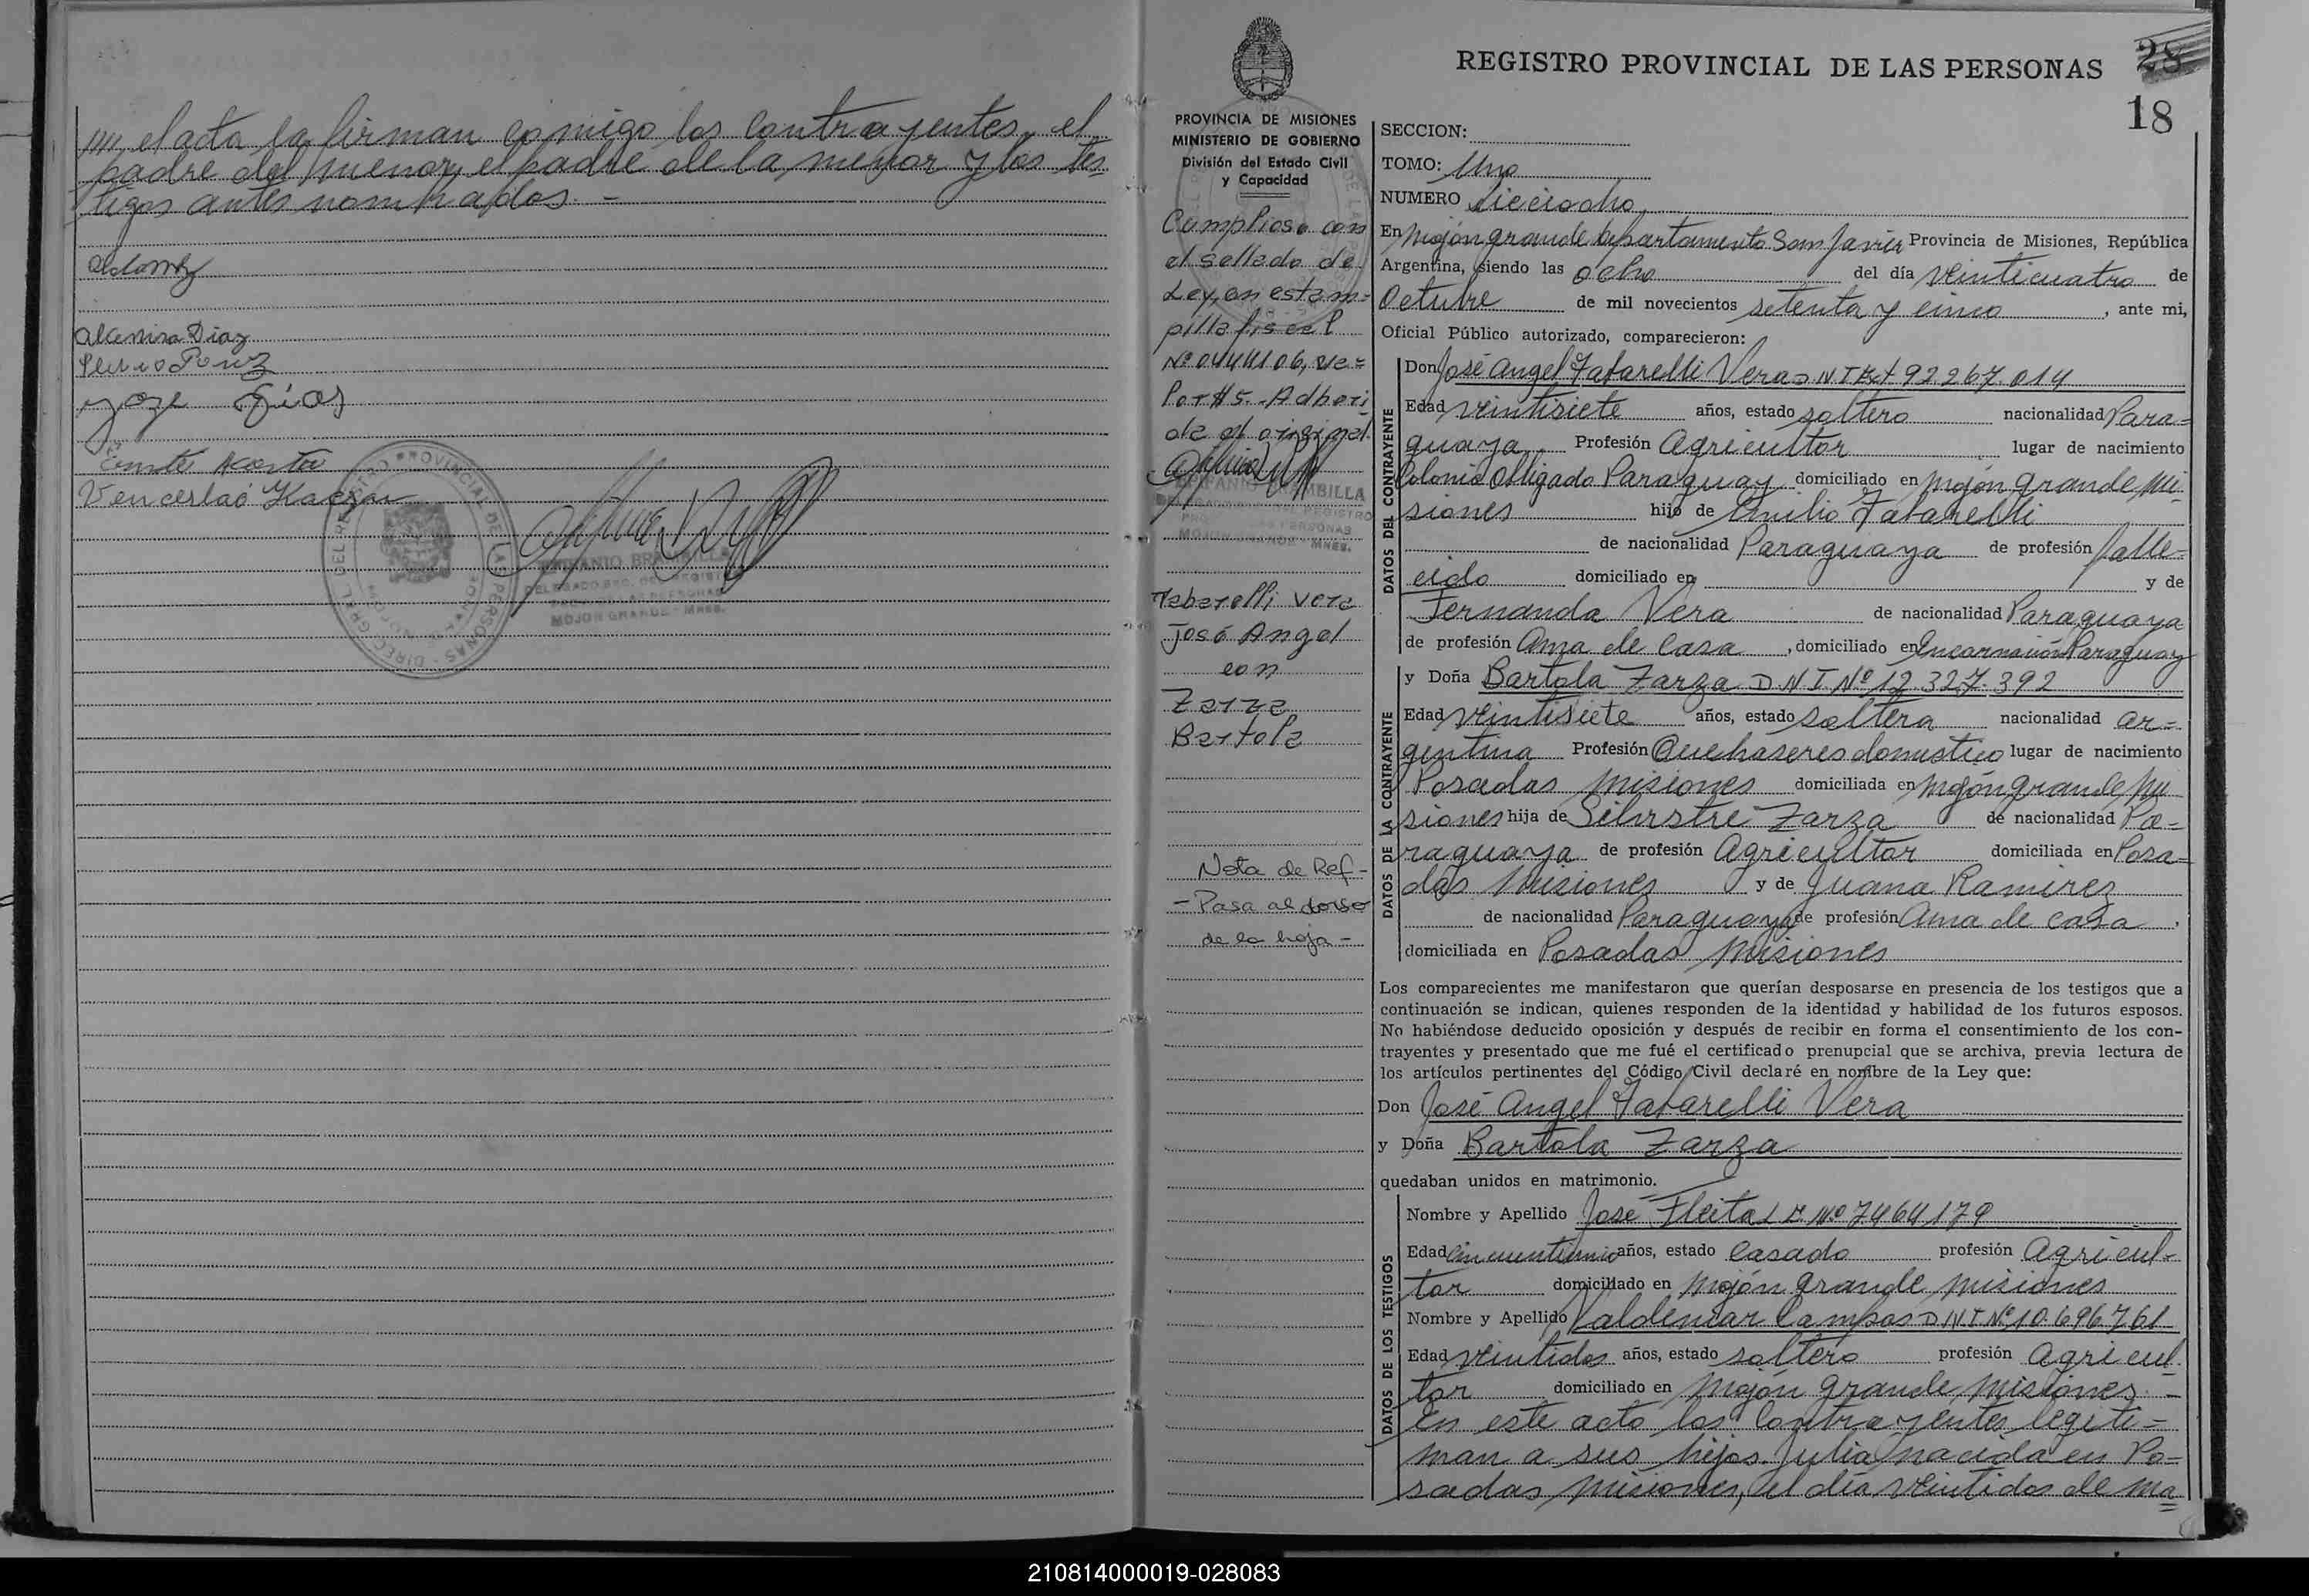 //// el acta la firman comigo los contrayentes, el
padre del menor, el padre de la menor y los tes-
tigos antes nombrados. -
Alcenira Diaz
Ernesto Acosta
Venceslao
EPIFANIO BRAMBILLA
MOJON GRANDE - MNES.
REGISTRO PROVINCIAL DE LAS PERSONAS
28
18
PROVINCIA DE MISIONES
MINISTERIO DE GOBIERNO
División del Estado Civil
y Capacidad
Cumpliose con
el sellado de
Ley, en estam-
pilla fiscal
Nº 0444106, va-
lor $ 5.- Adheri
da al original.
EPIFANIO BRAMBILLA
MOJON GRANDE - MNES.
Tabarelli Vera
José Angel
con
Zarza
Bartola
Nota de Ref-
- Pasa al dorso
de la hoja -
SECCION:
TOMO: Uno
NUMERO Dieciocho
En Mojón grande departamento San Javier Provincia de Misiones, República
Argentina, siendo las ocho del día veinticuatro de
Octubre de mil novecientos setenta y cinco, ante mi,
Oficial Público autorizado, comparecieron:
DATOS DEL CONTRAYENTE
Don José Angel Tabarelli Vera D N I Ext 92267.014
Edad veintisiete años, estado soltero nacionalidad Para-
guaya Profesión Agricultor lugar de nacimiento
Colonia Obligado Paraguay domiciliado en Mojón grande Mi-
siones hijo de Emilio Tabarelli
de nacionalidad Paraguaya de profesión falle-
cido domiciliado en y de
Fernanda Vera de nacionalidad Paraguaya
de profesión Ama de Casa, domiciliado en Encarnación Paraguay
DATOS DE LA CONTRAYENTE
y Doña Bartola Zarza D N I Nº 12.327.392
Edad veintisiete años, estado soltera nacionalidad ar-
gentina Profesión Quehaseres domestico lugar de nacimiento
Posadas Misiones domiciliada en Mojón grande Mi
siones hija de Silvestre Zarza de nacionalidad Pa-
raguaya de profesión Agricultor domiciliada en Posa-
das Misiones y de Juana Ramirez
de nacionalidad Paraguaya de profesión Ama de casa,
domiciliada en Posadas Misiones
Los comparecientes me manifestaron que querían desposarse en presencia de los testigos que a
continuación se indican, quienes responden de la identidad y habilidad de los futuros esposos.
No habiéndose deducido oposición y después de recibir en forma el consentimiento de los con-
trayentes y presentado que me fué el certificado prenupcial que se archiva, previa lectura de
los artículos pertinentes del Código Civil declaré en nombre de la Ley que:
Don José Angel Tabarelli Vera
y Doña Bartola Zarza
quedaban unidos en matrimonio.
DATOS DE LOS TESTIGOS
Nombre y Apellido José Fleita L E Nº 7464179
Edad años, estado Casado profesión Agricul-
tor domiciliado en Mojón grande Misiones
Nombre y Apellido Valdemar Campos D.N.I. Nº 10.696.761
Edad veintidos años, estado soltero profesión Agricul-
tor domiciliado en Mojón grande Misiones. -
En este acto los Contrayentes legiti-
man a sus hijos. Julia nacida en Po-
sadas Misiones, el día veintidos de ma-
210814000019-028083